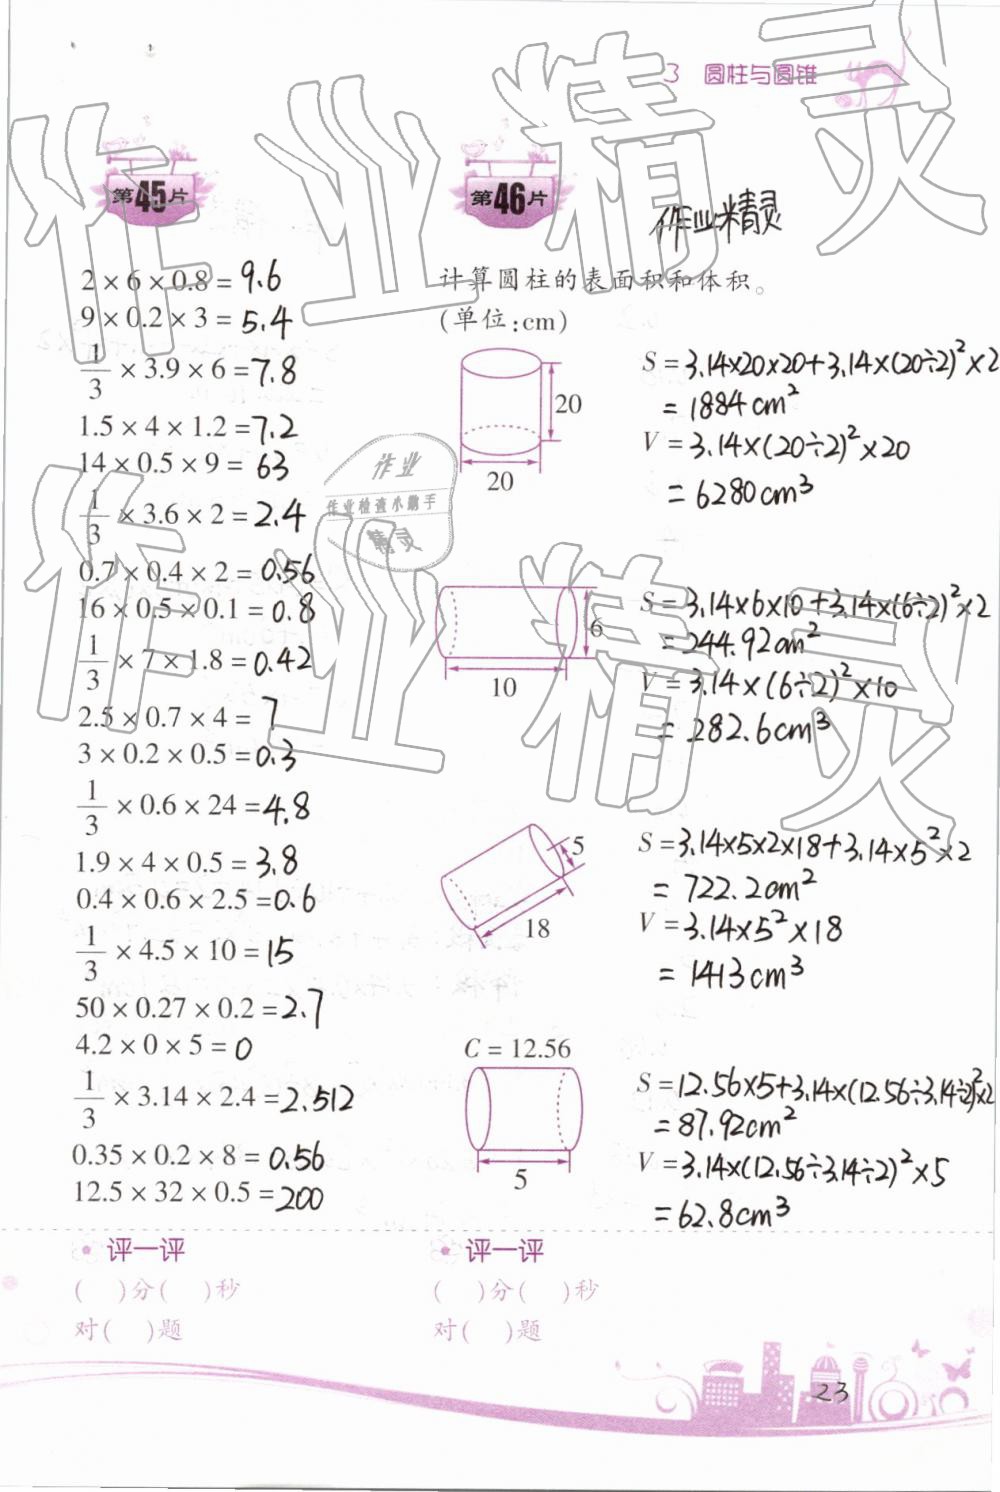 3 圆柱与圆锥
作业精灵
第45片
2 × 6 × 0.8 = 9.6
9 × 0.2 × 3 = 5.4
1/3 × 3.9 × 6 = 7.8
1.5 × 4 × 1.2 = 7.2
14 × 0.5 × 9 = 63
1/3 × 3.6 × 2 = 2.4
0.7 × 0.4 × 2 = 0.56
16 × 0.5 × 0.1 = 0.8
1/3 × 7 × 1.8 = 0.42
2.5 × 0.7 × 4 = 7
3 × 0.2 × 0.5 = 0.3
1/3 × 0.6 × 24 = 4.8
1.9 × 4 × 0.5 = 3.8
0.4 × 0.6 × 2.5 = 0.6
1/3 × 4.5 × 10 = 15
50 × 0.27 × 0.2 = 2.7
4.2 × 0 × 5 = 0
1/3 × 3.14 × 2.4 = 2.512
0.35 × 0.2 × 8 = 0.56
12.5 × 32 × 0.5 = 200
评一评
( )分( )秒
对( )题
第46片
作业精灵
计算圆柱的表面积和体积。
(单位:cm)
20
20
S = 3.14×20×20+3.14×(20÷2)²×2
= 1884cm²
V = 3.14×(20÷2)²×20
= 6280cm³
作业
作业检查小助手
精灵
作业精灵
6
10
S = 3.14×6×10+3.14×(6÷2)²×2
= 244.92cm²
V = 3.14×(6÷2)²×10
= 282.6cm³
5
18
S = 3.14×5×2×18+3.14×5²×2
= 722.2cm²
V = 3.14×5²×18
= 1413cm³
C = 12.56
5
S = 12.56×5+3.14×(12.56÷3.14÷2)²×2
= 87.92cm²
V = 3.14×(12.56÷3.14÷2)²×5
= 62.8cm³
评一评
( )分( )秒
对( )题
23